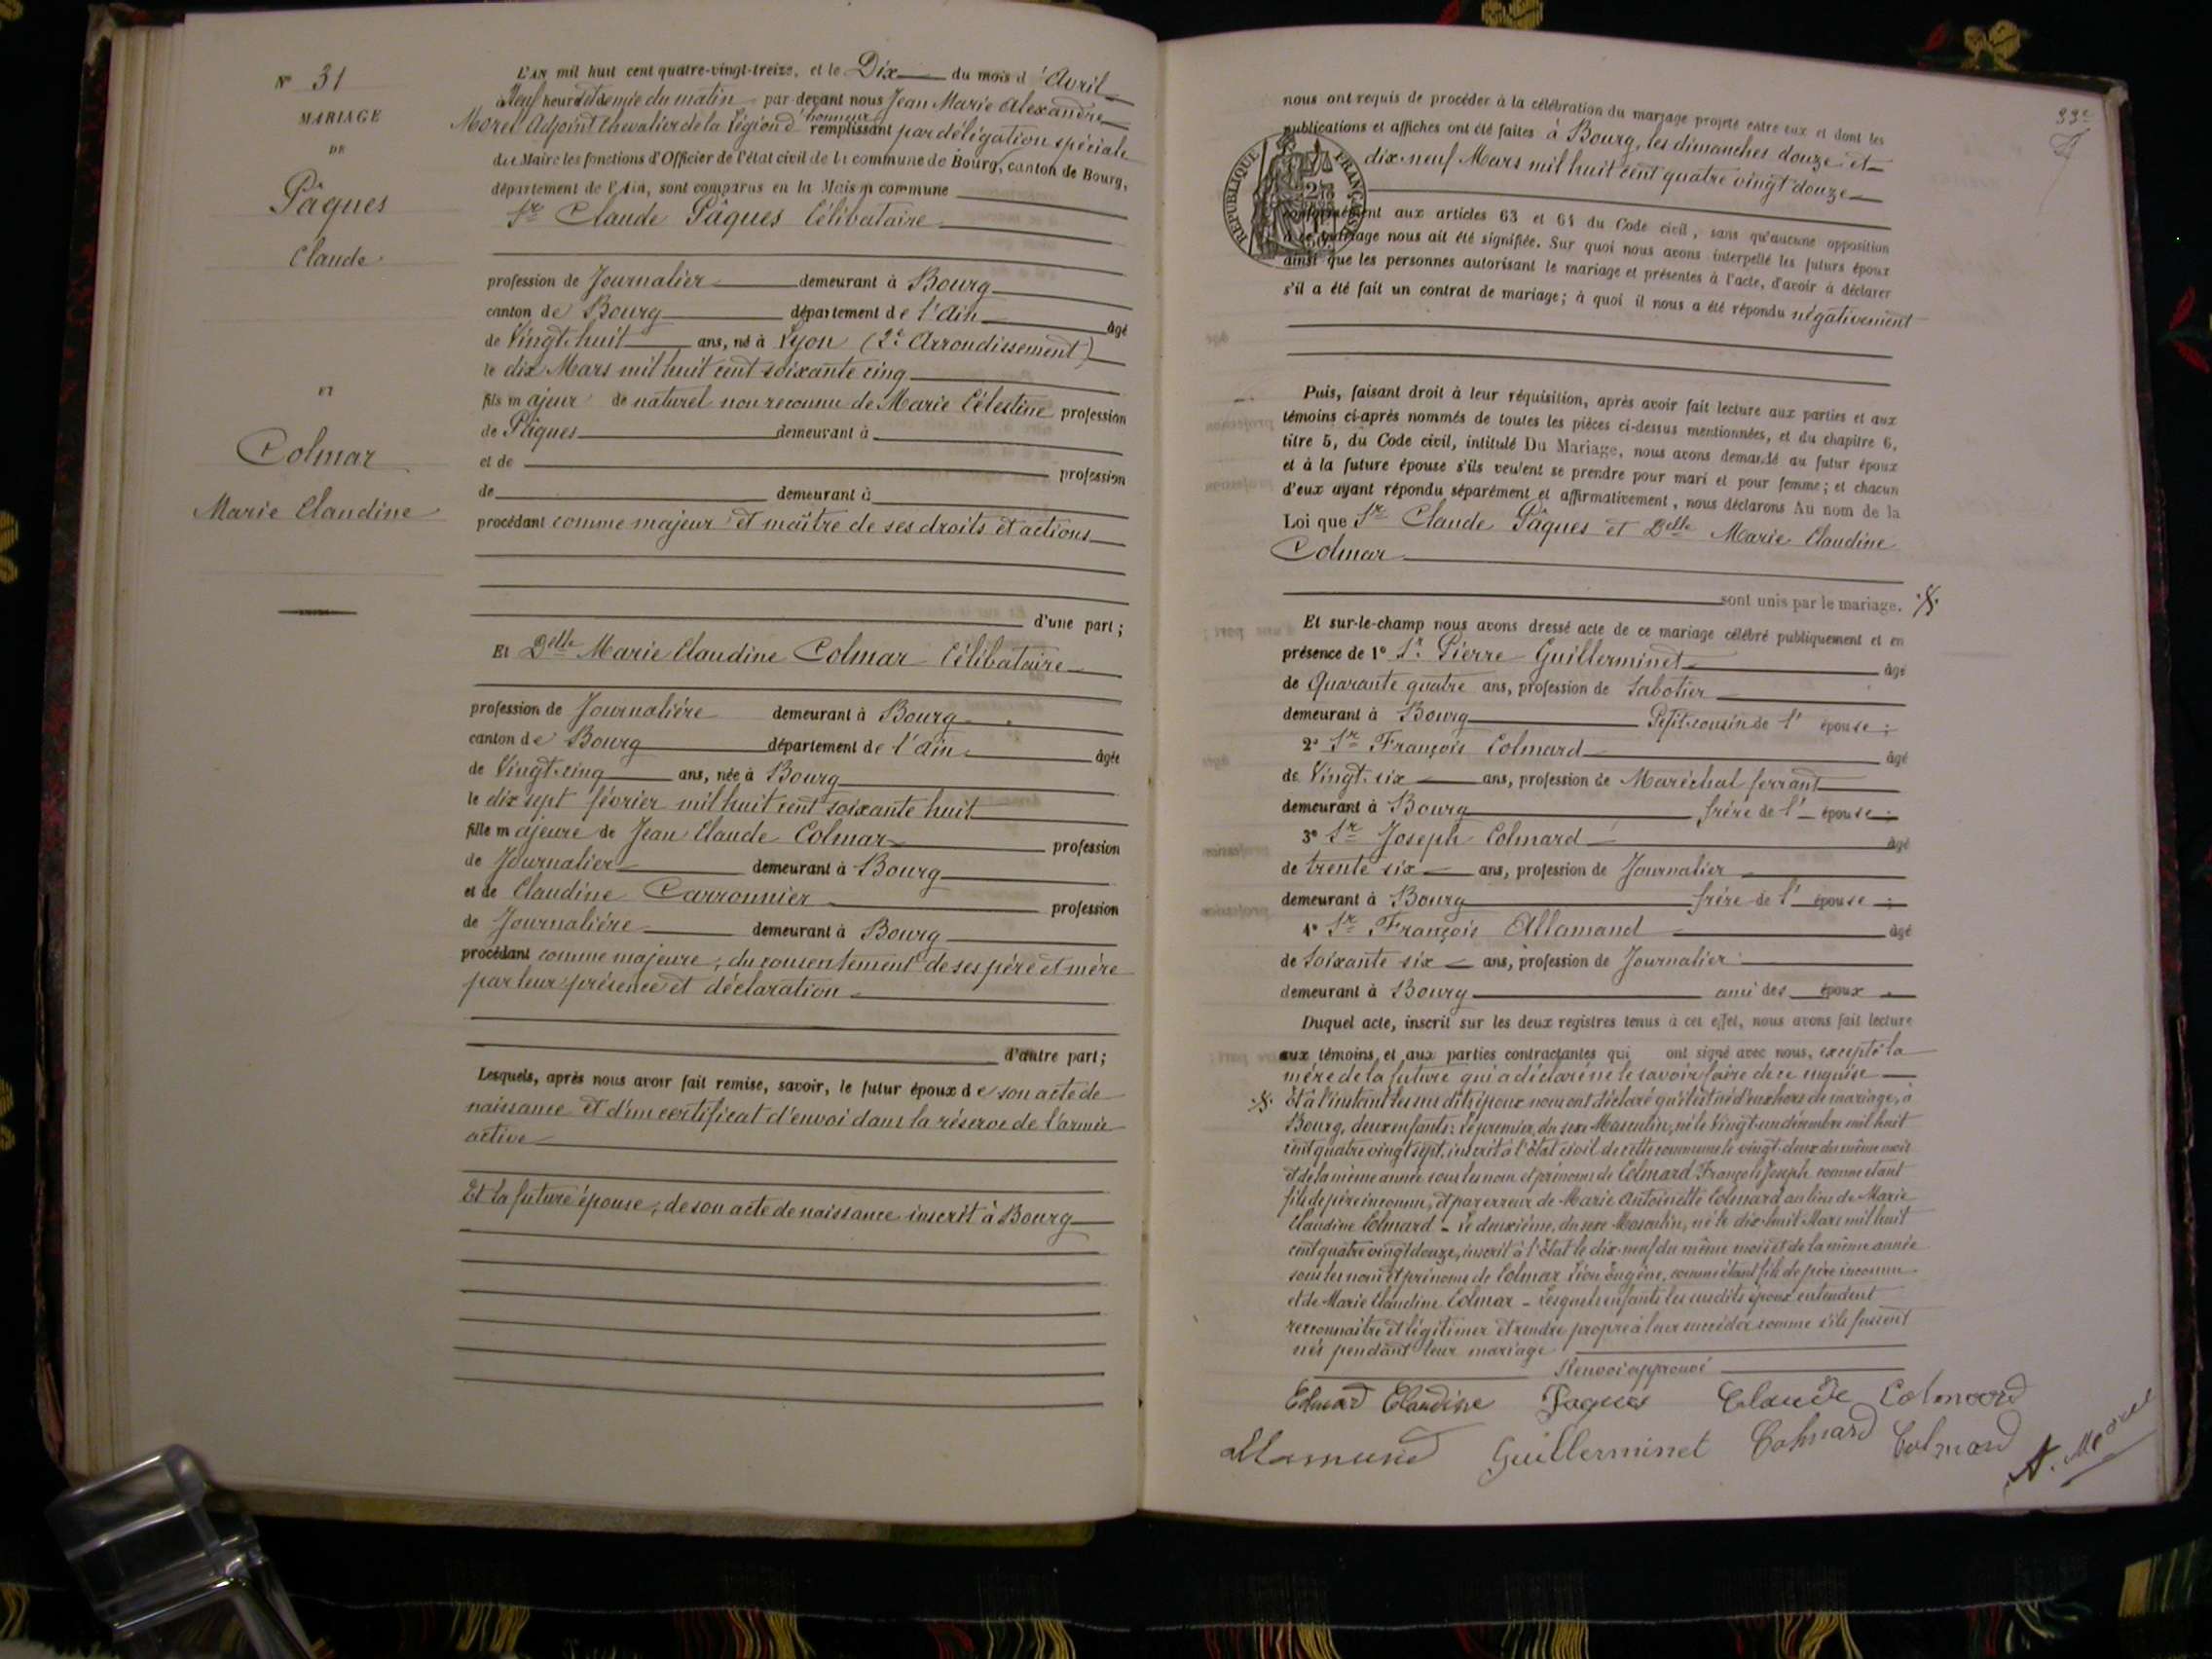 N° 31
MARIAGE
DE
Pâques
Claude
ET
Colmar
Marie Claudine
L'AN mil huit cent quatre-vingt-treize, et le Dix du mois d'Avril
à Neuf heures et demie du matin par-devant nous Jean Marie Alexandre
Morel Adjoint Chevalier de la Légion d'honneur remplissant par délégation spéciale
du Maire les fonctions d'Officier de l'état civil de la commune de Bourg, canton de Bourg,
département de l'Ain, sont comparus en la Maison commune
Sr Claude Pâques Célibataire
profession de Journalier demeurant à Bourg
canton de Bourg département de l'Ain âgé
de Vingt-huit ans, né à Lyon (2e Arrondissement)
le dix Mars mil huit cent soixante cinq
fils majeur de naturel non reconnu de Marie Célestine profession
de Pâques demeurant à
et de profession
de demeurant à
procédant comme majeur et maître de ses droits et actions
d'une part;
Et Delle Marie Claudine Colmar Célibataire
profession de Journalière demeurant à Bourg
canton de Bourg département de l'Ain âgée
de Vingt-cinq ans, née à Bourg
le dix sept février mil huit cent soixante huit
fille majeure de Jean Claude Colmar profession
de Journalier demeurant à Bourg
et de Claudine Carronnier profession
de Journalière demeurant à Bourg
procédant comme majeure, du consentement de ses père et mère
par leur présence et déclaration
d'autre part;
Lesquels, après nous avoir fait remise, savoir, le futur époux de son acte de
naissance et d'un certificat d'envoi dans la réserve de l'armée
active
Et la future épouse, de son acte de naissance inscrit à Bourg
33e
nous ont requis de procéder à la célébration du mariage projeté entre eux et dont les
publications et affiches ont été faites à Bourg, les dimanches douze et
dix-neuf Mars mil huit cent quatre vingt douze
RÉPUBLIQUE FRANÇAISE
conformément aux articles 63 et 64 du Code civil, sans qu'aucune opposition
à ce mariage nous ait été signifiée. Sur quoi nous avons interpellé les futurs époux
ainsi que les personnes autorisant le mariage et présentes à l'acte, d'avoir à déclarer
s'il a été fait un contrat de mariage; à quoi il nous a été répondu négativement
Puis, faisant droit à leur réquisition, après avoir fait lecture aux parties et aux
témoins ci-après nommés de toutes les pièces ci-dessus mentionnées, et du chapitre 6,
titre 5, du Code civil, intitulé Du Mariage, nous avons demandé au futur époux
et à la future épouse s'ils veulent se prendre pour mari et pour femme; et chacun
d'eux ayant répondu séparément et affirmativement, nous déclarons Au nom de la
Loi que Sr Claude Pâques et Delle Marie Claudine
Colmar
sont unis par le mariage.
Et sur-le-champ nous avons dressé acte de ce mariage célébré publiquement et en
présence de 1° Sr Pierre Guillerminet âgé
de Quarante quatre ans, profession de Sabotier
demeurant à Bourg Petit-cousin de l'épouse;
2° Sr François Colmard âgé
de Vingt-six ans, profession de Maréchal ferrant
demeurant à Bourg frère de l'épouse;
3° Sr Joseph Colmard âgé
de trente six ans, profession de Journalier
demeurant à Bourg frère de l'épouse;
4° Sr François Allamand âgé
de soixante six ans, profession de Journalier
demeurant à Bourg ami des époux
Duquel acte, inscrit sur les deux registres tenus à cet effet, nous avons fait lecture
aux témoins et aux parties contractantes qui ont signé avec nous, excepté la
mère de la future qui a déclaré ne le savoir faire de ce enquise
Et à l'instant les sus dits époux nous ont déclaré qu'il est né d'eux hors de mariage, à
Bourg, deux enfants: le premier, du sexe Masculin, né le Vingt-un décembre mil huit
cent quatre vingt sept, inscrit à l'état civil de cette commune le vingt-deux du même mois
et de la même année sous les nom et prénoms de Colmard François Joseph comme étant
fils de père inconnu, et par erreur de Marie Antoinette Colmard au lieu de Marie
Claudine Colmard - Le deuxième, du sexe Masculin, né le dix-huit Mars mil huit
cent quatre vingt douze, inscrit à l'état le dix-neuf du même mois et de la même année
sous les nom et prénoms de Colmar Léon Eugène, comme étant fils de père inconnu
et de Marie Claudine Colmar - Lesquels enfants les susdits époux entendent
reconnaître et légitimer et rendre propre à leur succéder comme s'ils fussent
nés pendant leur mariage
Renvoi approuvé
Colmard Claudine Paques Claude Colmard
Allamand Guillerminet Colmard Colmard A. Morel